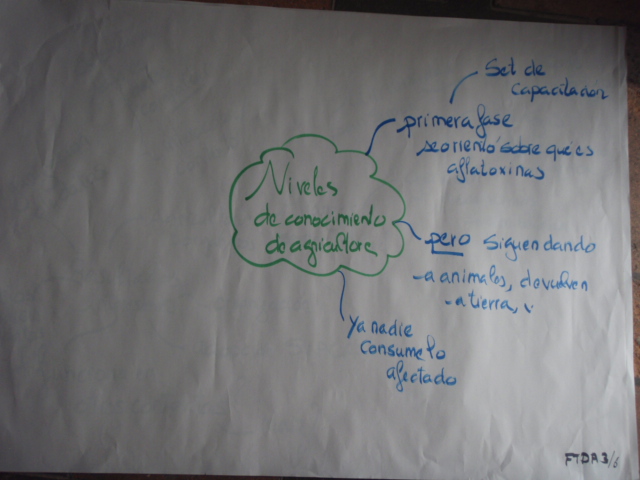 Niveles
de conocimiento
de agricultore
Set de
capacitación
primera fase
se oriento sobre que es
aflatoxinas
pero siguen dando
- a animales, devuelven
- a tierra, v
Ya nadie
consume lo
afectado
FTDA3/6